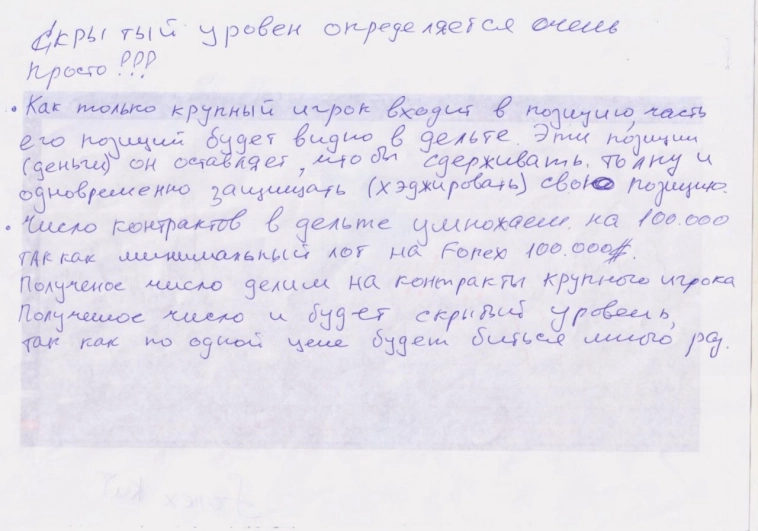 Скрытый уровен определяется очень
просто!!!
• Как только крупный игрок входит в позицию, часть
его позиций будет видно в дельте. Эти позиции
(деньги) он оставляет, что бы сдерживать толпу и
одновременно защищать (хэджировать) свою позицию.
• Число контрактов в дельте умножаем на 100.000
так как минимальный лот на Forex 100.000#.
Полученое число делим на контракты крупного игрока
Полученное число и будет скрытый уровень,
так как по одной цене будет биться много раз.